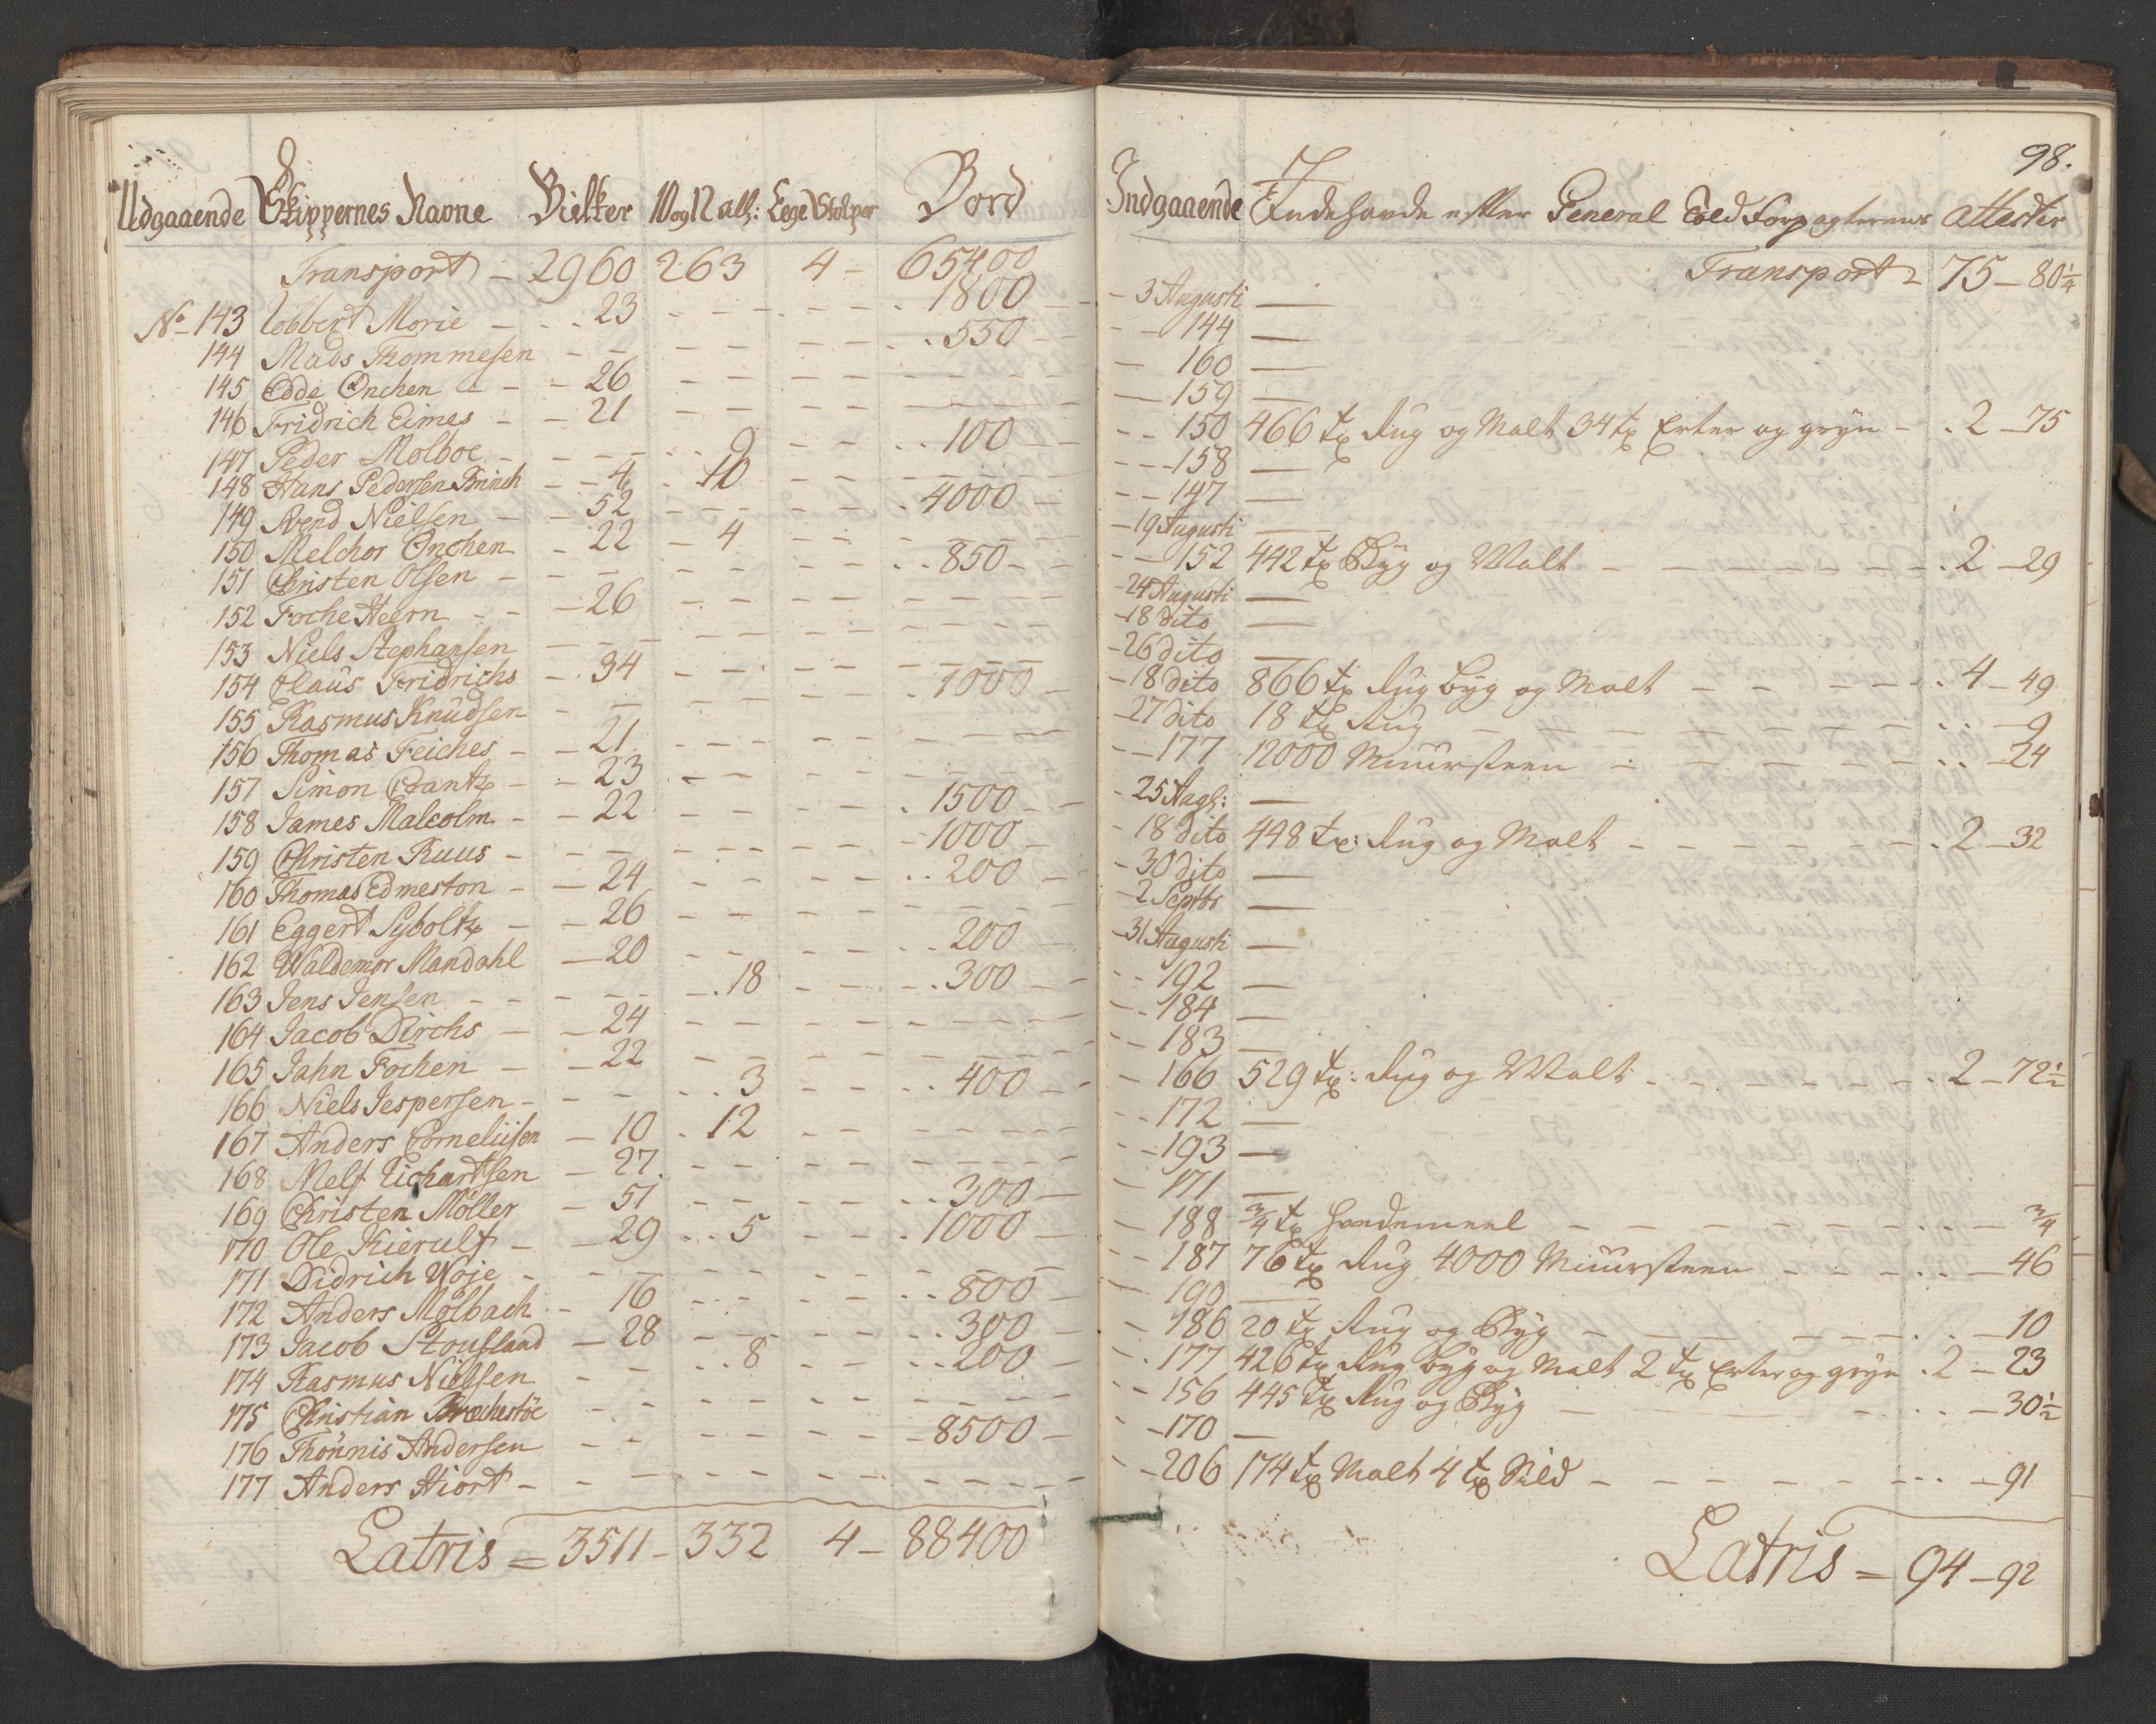 Udgaaende Skippernes Navne Bielker 10 og 12 all: Eege Stolper Bord
Transport - 2960 263 4 - 65400
No 143 Cobbert Morie - 23 - 1800
144 Mads Thommesen - 550
145 Edde Onchen - 26
146 Fridrich Eimes - 21
147 Peder Molboe - 9 - 100
148 Hans Pedersen Brinch - 4 10
149 Svend Nielsen - 52 - 4000
150 Melchor Onchen - 22 - 4
151 Christen Olsen - 850
152 Foche Heern - 26
153 Niels Stephansen
154 Claus Fridrichs - 34
155 Rasmus Knudsen - 1000
156 Thomas Feiches - 21
157 Simon Crantz - 23
158 James Malcolm - 22 - 1500
159 Christen Ruus - 1000
160 Thomas Edmeston - 24 - 200
161 Eggert Syboltz - 26
162 Waldemor Mandahl - 20 - 200
163 Jens Jensen - 18 - 300
164 Jacob Dirchs - 24
165 Jahn Fochen - 22
166 Niels Jespersen - 3 - 400
167 Anders Corneliisen - 10 12
168 Melf Richartsen - 27
169 Christen Möller - 51 - 300
170 Ole Kierulf - 29 5 - 1000
171 Didrich Woje
172 Anders Mølbach - 16 - 800
173 Jacob Stousland - 28 - 300
174 Rasmus Nielsen - 8 - 200
175 Christian Brochestöe
176 Thönnis Andersen - 8500
177 Anders Hiort -
Latris = 3511 - 332 4 - 88400
98.
Indgaaende Indehavde efter General Told Forpagternes Attester
Transport - 75 - 80 1/4
- 3 Augusti —
- 144 —
- 160 —
- 159 —
- 150 466 tr Rug og Malt 34 tr Erter og gryn - 2 - 75
- 158 —
- 147 —
- 19 Augusti —
- 152 442 tr Byg og Malt - 2 - 29
- 24 Augusti —
- 18 dito —
- 26 dito —
- 18 dito 866 tr Rug Byg og Malt - 4 - 49
- 27 dito 18 tr Rug - 9
- 177 12000 Muursteen - 24
- 25 Augs: —
- 18 dito 448 tr: Rug og Malt - 2 - 32
- 30 dito —
- 2 Septbr —
- 31 Augusti —
- 192 —
- 184 —
- 183 —
- 166 529 tr: Rug og Malt - 2 - 72 1/2
- 172 —
- 193 —
- 171 —
- 188 3/4 tr Hvedemeel - 3/4
- 187 76 tr Rug 4000 Muursteen - 46
- 190 —
- 186 20 tr Rug og Byg - 10
- 177 426 tr Rug Byg og Malt 2 tr Erter og gryn . 2 - 23
- 156 445 tr Rug og Byg - 30 1/2
- 170 —
- 206 174 tr Malt 4 tr Sild - 91
Latris = 94 - 92